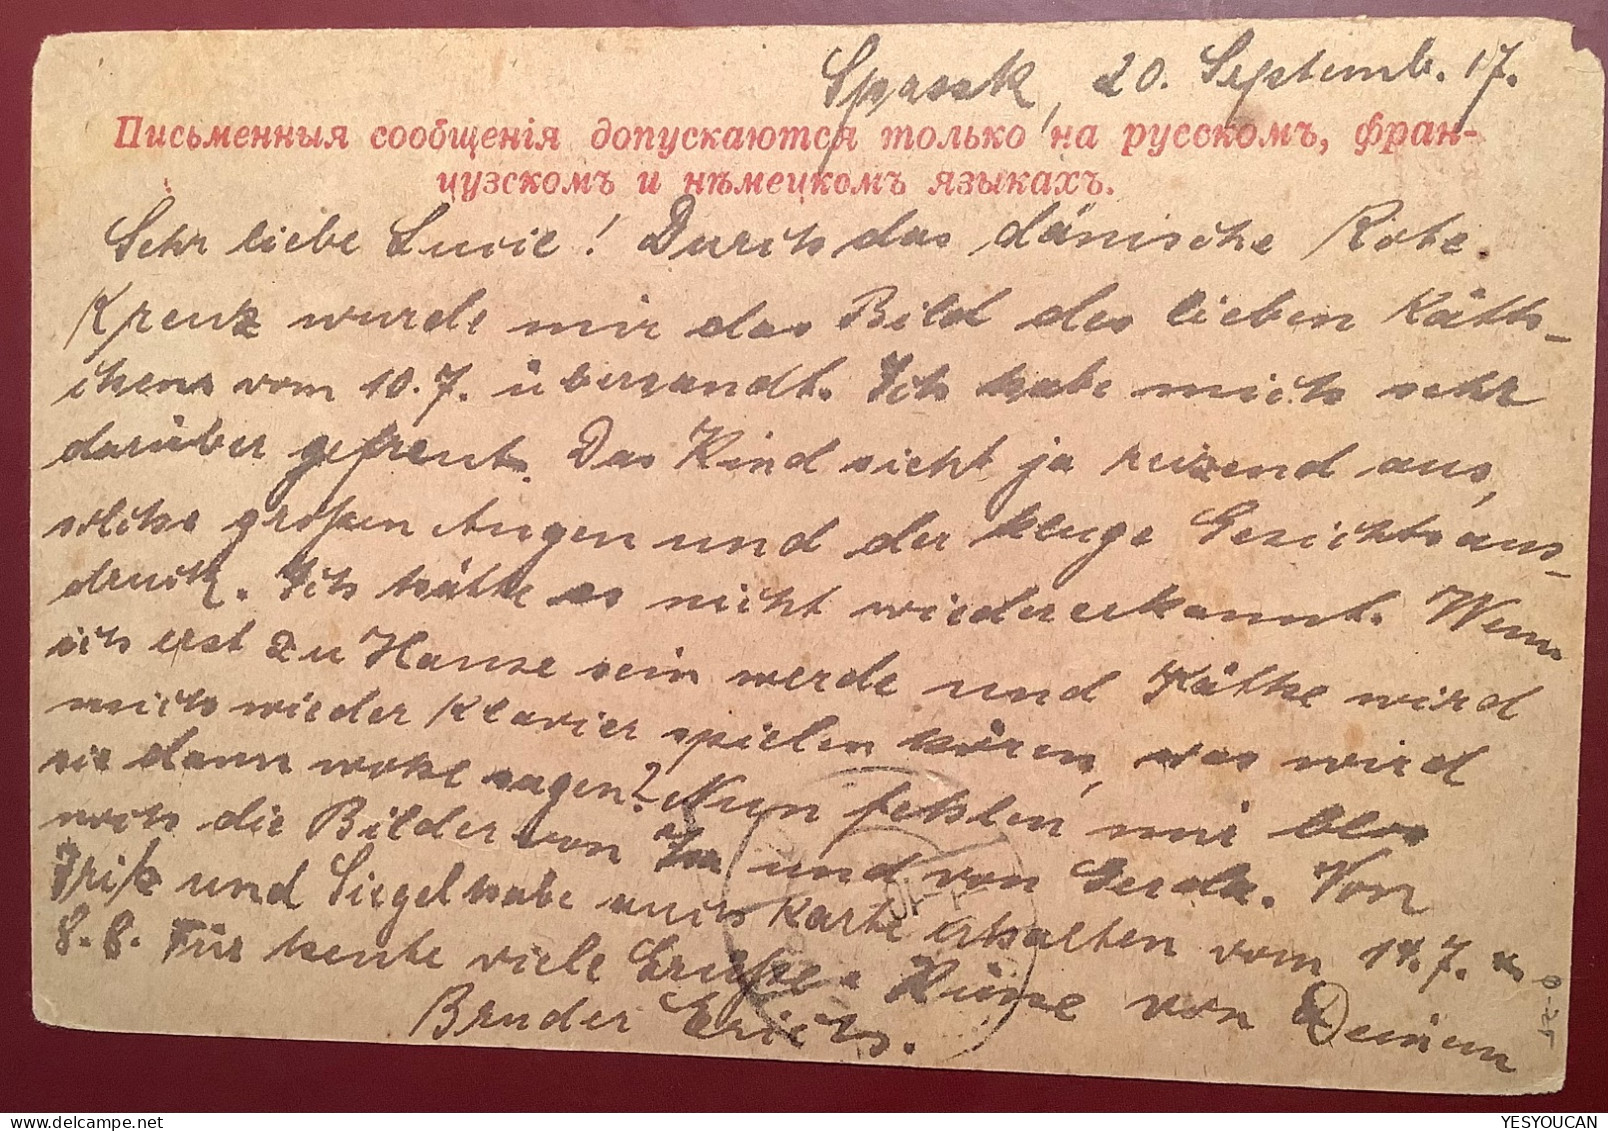 Spassk, 20. Septemb. 17.
Письменныя сообщенія допускаются только на русскомъ, фран-
цузскомъ и нѣмецкомъ языкахъ.
Sehr liebe Lucie! Durch das dänische Rote
Kreuz wurde mir das Bild des lieben Käth-
chens vom 10.7. übersandt. Ich habe mich sehr
darüber gefreut. Das Kind sieht ja reizend aus,
solche großen Augen und der kluge Gesichtsaus-
druck. Ich hätte es nicht wiedererkannt. Wenn
ich erst zu Hause sein werde und Käthe wird
mich wieder Klavier spielen hören, was wird
sie dann wohl sagen? Nun fehlen mir blos
noch die Bilder von und von Gerda. Von
Fritz und Siegel habe auch Karte erhalten vom 14.7. u.
8.8. Für heute viele Grüße u. Küsse von Deinem
Bruder Erich.
YESYOUCAN